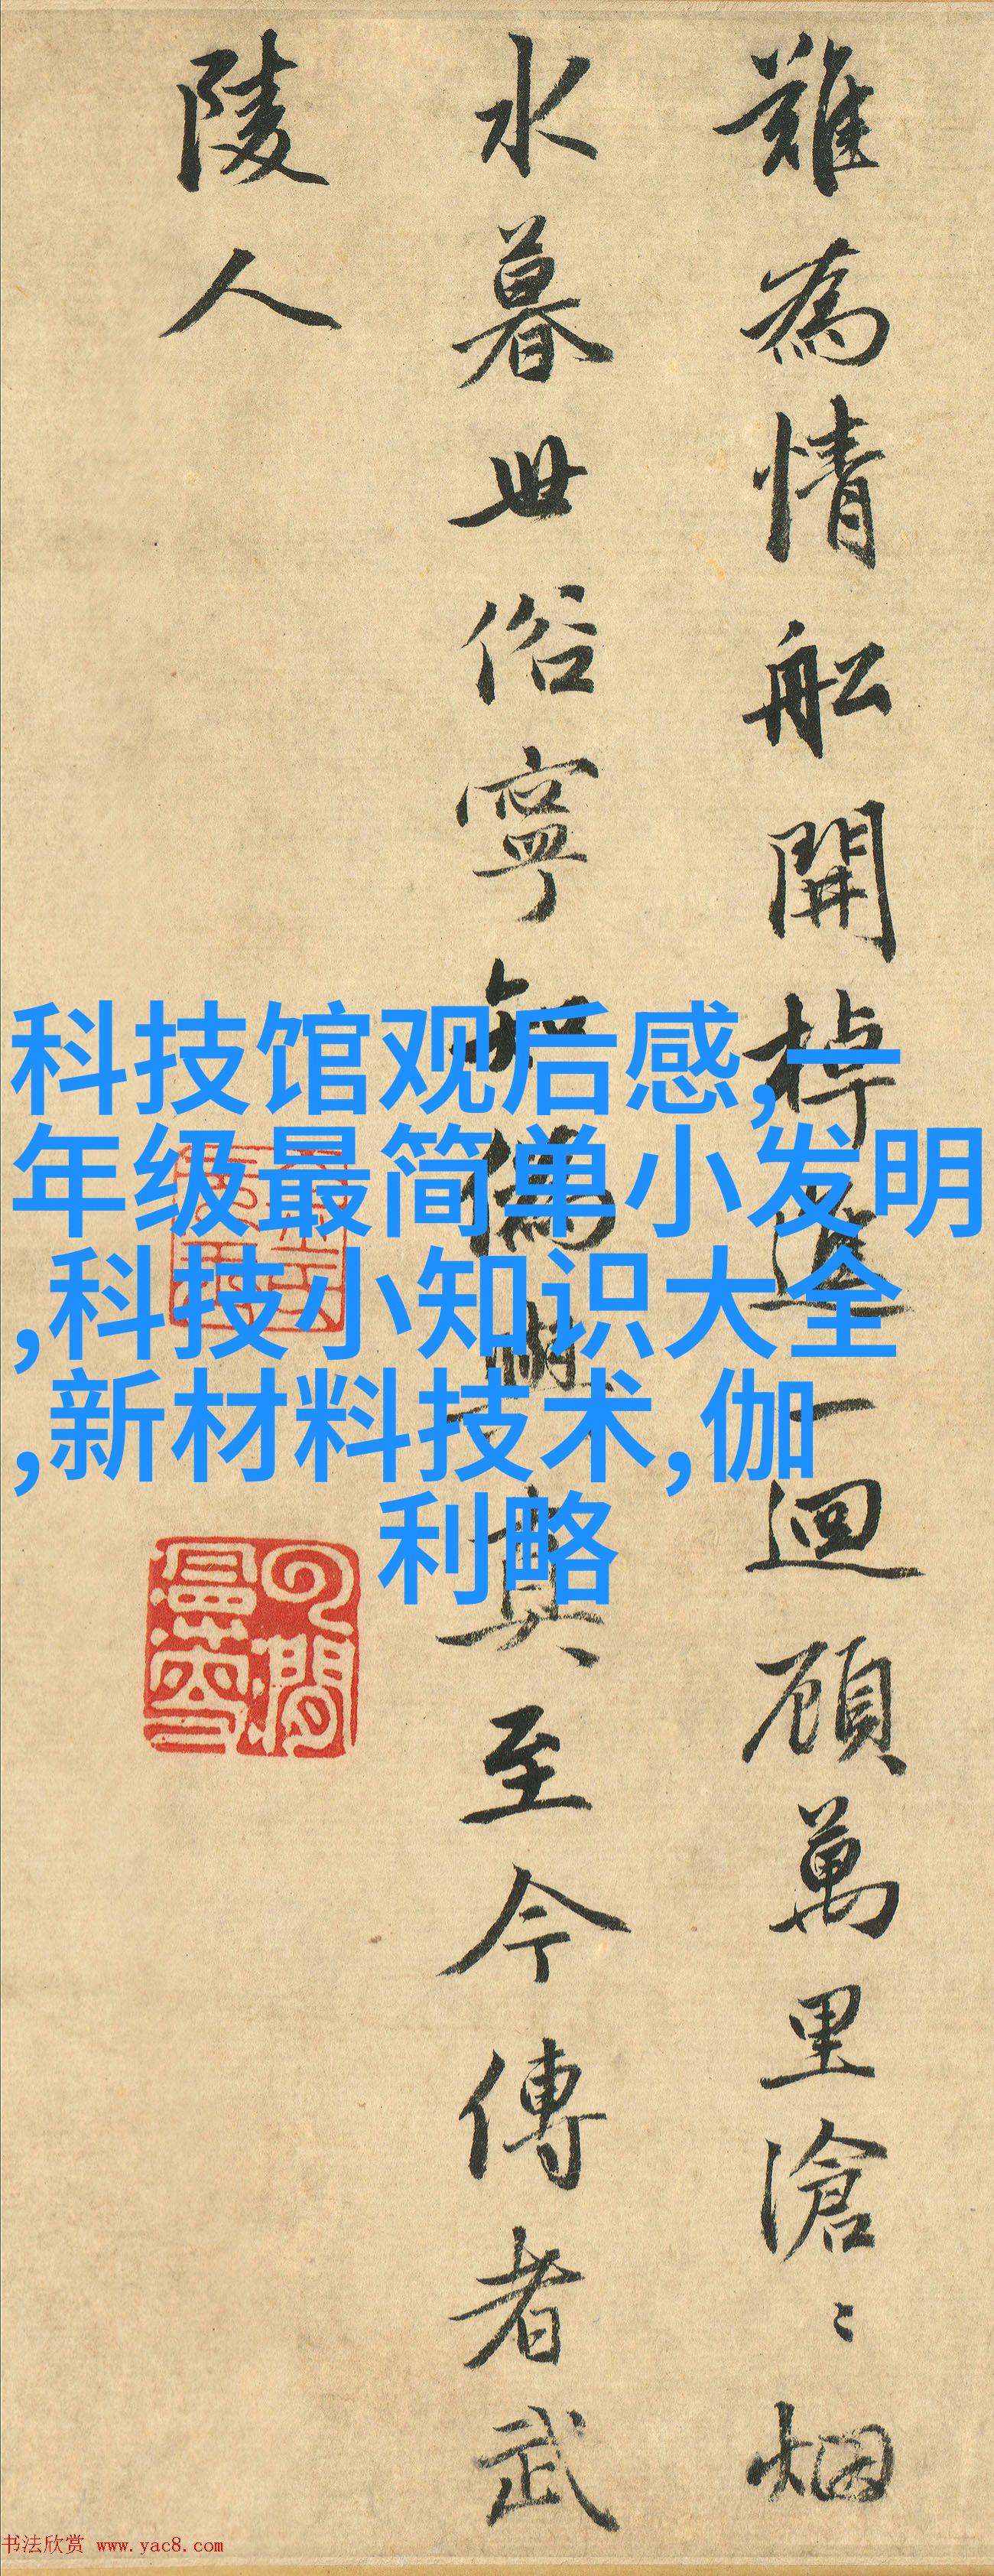 難為情舩開棹進一迴顧萬里滄〻烟
水暮世俗寧知偽與真至今傳者武
陵人
科技馆观后感,一
年级最简单小发明
,科技小知识大全
,新材料技术,伽
利略
书法欣赏 www.yac8.com